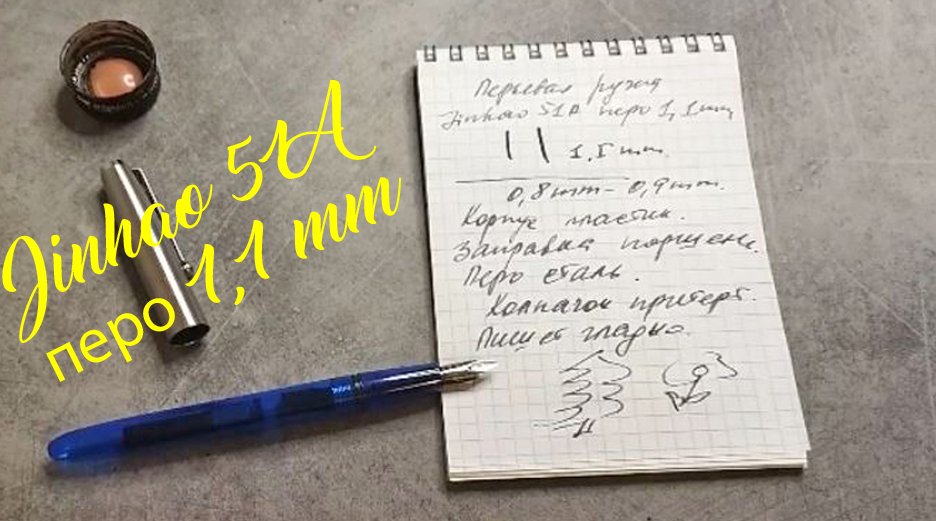 Jinhao 51A
перо 1,1 mm
Перьевая ручка
Jinhao 51A перо 1,1mm
1,1mm.
0,8mm - 0,9mm.
Корпус пластик.
Заправка поршень.
Перо сталь.
Колпачок притерт.
Пишет гладко.